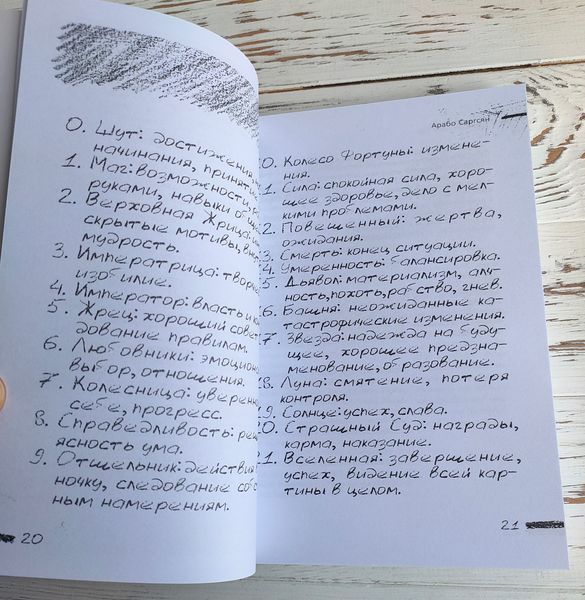 0. Шут: достижения,
начинания, принят
1. Маг: возможности, р
руками, навыки об
2. Верховная Жрица: ин
скрытые мотивы, вну
мудрость.
3. Императрица: творче
изобилие.
4. Император: власть и ко
5. Жрец: хороший совет
дование правилам.
6. Любовники: эмоцион
выбор, отношения.
7. Колесница: уверен
себе, прогресс.
8. Справедливость: реш
ясность ума.
9. Отшельник: действия
ночку, следование со
ным намерениям.
20
Арабо Саргсян
0. Колесо Фортуны: измене-
ния.
1. Сила: спокойная сила, хоро-
шее здоровье, дело с мел-
кими проблемами.
2. Повешенный: жертва,
ожидания.
3. Смерть: конец ситуации.
4. Умеренность: балансировка.
5. Дьявол: материализм, алч-
ность, похоть, рабство, гнев.
6. Башня: неожиданные ка-
тастрофические изменения.
7. Звезда: надежда на буду-
щее, хорошее предзна-
менование, образование.
18. Луна: смятение, потеря
контроля.
19. Солнце: успех, слава.
20. Страшный Суд: награды,
карма, наказание.
21. Вселенная: завершение,
успех, видение всей кар-
тины в целом.
21